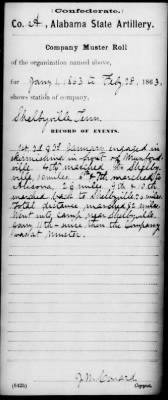 (Confederate.)
Co. A, Alabama State Artillery.
Company Muster Roll
of the organization named above,
for Jany 1, 1863 to Feby 28, 1863,
shows station of company,
Shelbyville Tenn.
RECORD OF EVENTS.
1st, 2d & 3d January engaged in
skirmishing in front of
ville, 4th marched to Shelby-
ville, 10 miles. 6 & 7th marched to
26 miles. 9th & 10th
marched back to Shelbyville 26 miles.
Total distance marched 62 miles.
Went into camp near Shelbyville
Jany 11th - since then the Company
was not
(642b)
Copyist.